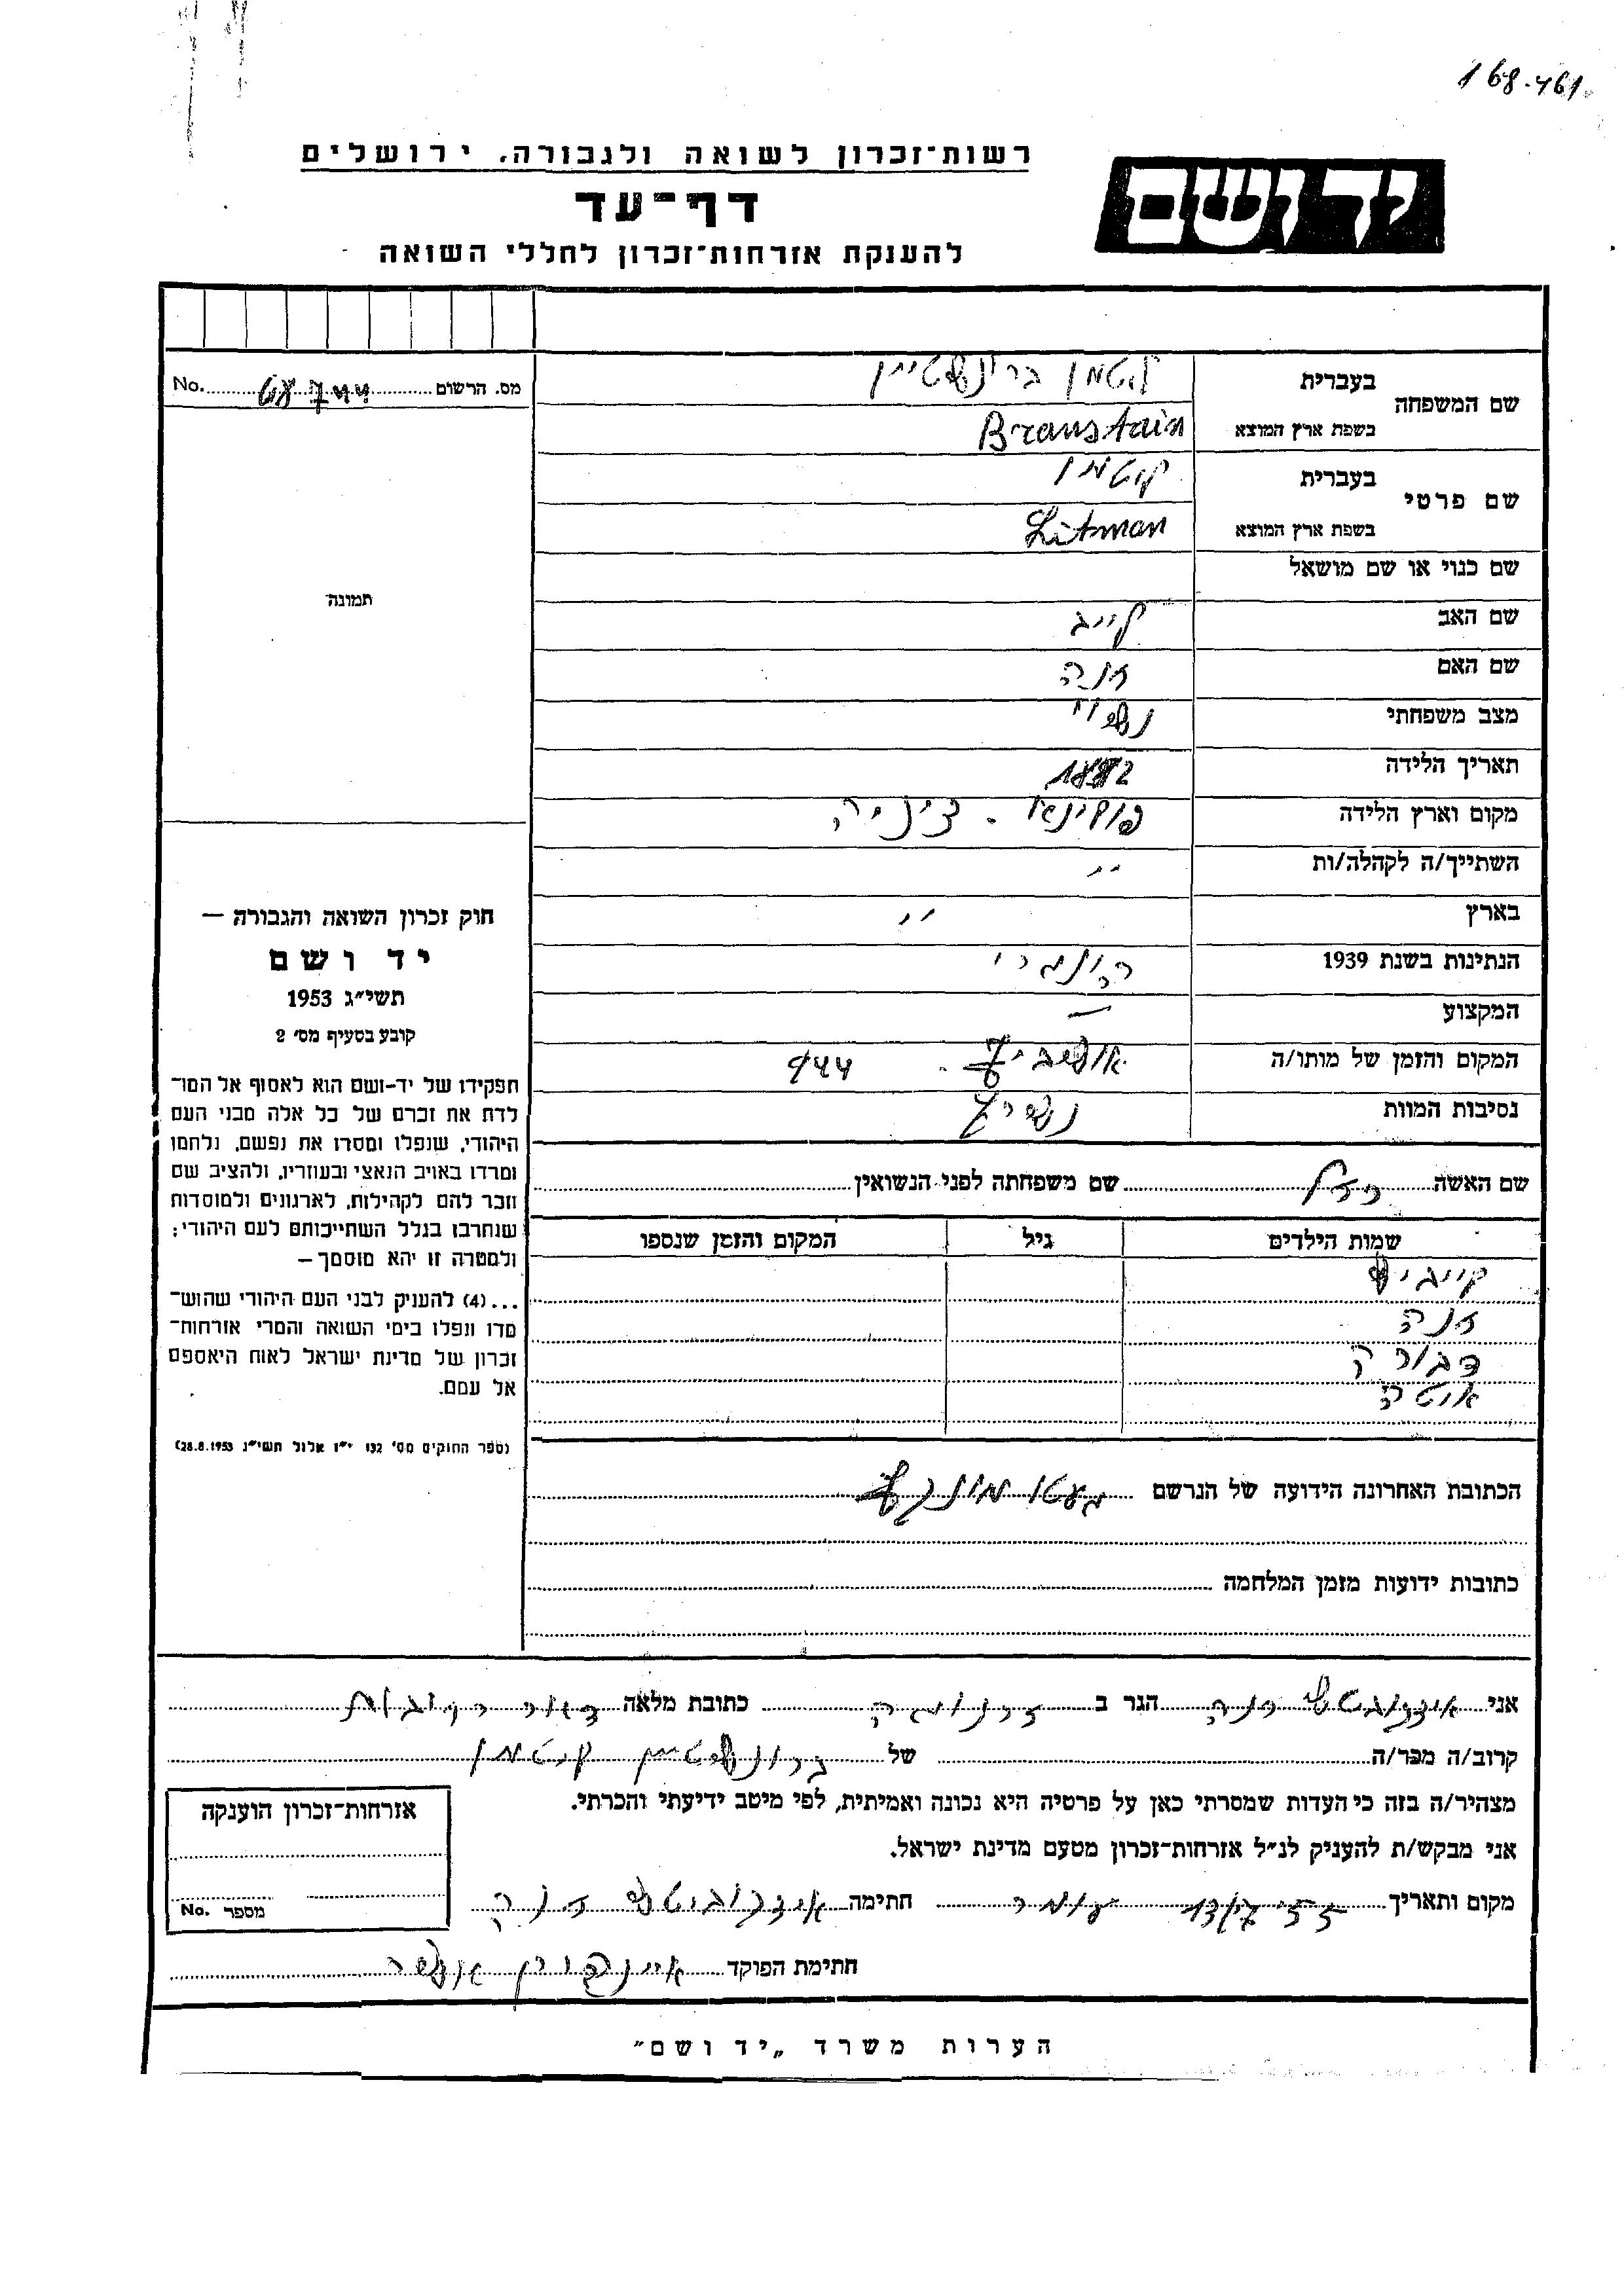 168.461
רשות־זכרון לשואה ולגבורה, ירושלים
יד ושם
דף־עד
להענקת אזרחות־זכרון לחללי השואה
מס. הרשום 68744 No.
שם המשפחה
בעברית
ליטמן ברינשטיין
בשפת ארץ המוצא
Branstain
שם פרטי
בעברית
ליטמן
בשפת ארץ המוצא
Litman
שם כנוי או שם מושאל
שם האב לייב
שם האם
מצב משפחתי נשוי
תאריך הלידה 1882
מקום וארץ הלידה
השתייך/ה לקהלה/ות ״
בארץ ״
הנתינות בשנת 1939 הונגרי
המקצוע —
המקום והזמן של מותו/ה אושביץ. 944
נסיבות המוות נשרף
תמונה
חוק זכרון השואה והגבורה —
יד ושם
תשי״ג 1953
קובע בסעיף מס׳ 2
תפקידו של יד-ושם הוא לאסוף אל המו־
לדת את זכרם של כל אלה מבני העם
היהודי, שנפלו ומסרו את נפשם, נלחמו
ומרדו באויב הנאצי ובעוזריו, ולהציב שם
וזכר להם לקהילות, לארגונים ולמוסדות
שנחרבו בגלל השתייכותם לעם היהודי;
ולמטרה זו יהא מוסמך —
...(4) להעניק לבני העם היהודי שהוש־
מדו ונפלו בימי השואה והמרי אזרחות־
זכרון של מדינת ישראל לאות היאספם
אל עמם.
(ספר החוקים מס׳ 132 י״ז אלול תשי״ג 28.8.1953)
שם האשה רצל שם משפחתה לפני הנשואין
שמות הילדים גיל המקום והזמן שנספו
לייביש
דבורה
איטה
הכתובת האחרונה הידועה של הנרשם געטו מונקץ
כתובות ידועות מזמן המלחמה
אני הגר ב כתובת מלאה דואר רחובות
קרוב/ה מכר/ה של ברונשטיין ליטמן
מצהיר/ה בזה כי העדות שמסרתי כאן על פרטיה היא נכונה ואמיתית, לפי מיטב ידיעתי והכרתי.
אני מבקש/ת להעניק לנ״ל אזרחות־זכרון מטעם מדינת ישראל.
מקום ותאריך חתימה
חתימת הפוקד
אזרחות־זכרון הוענקה
מספר No.
הערות משרד „יד ושם״